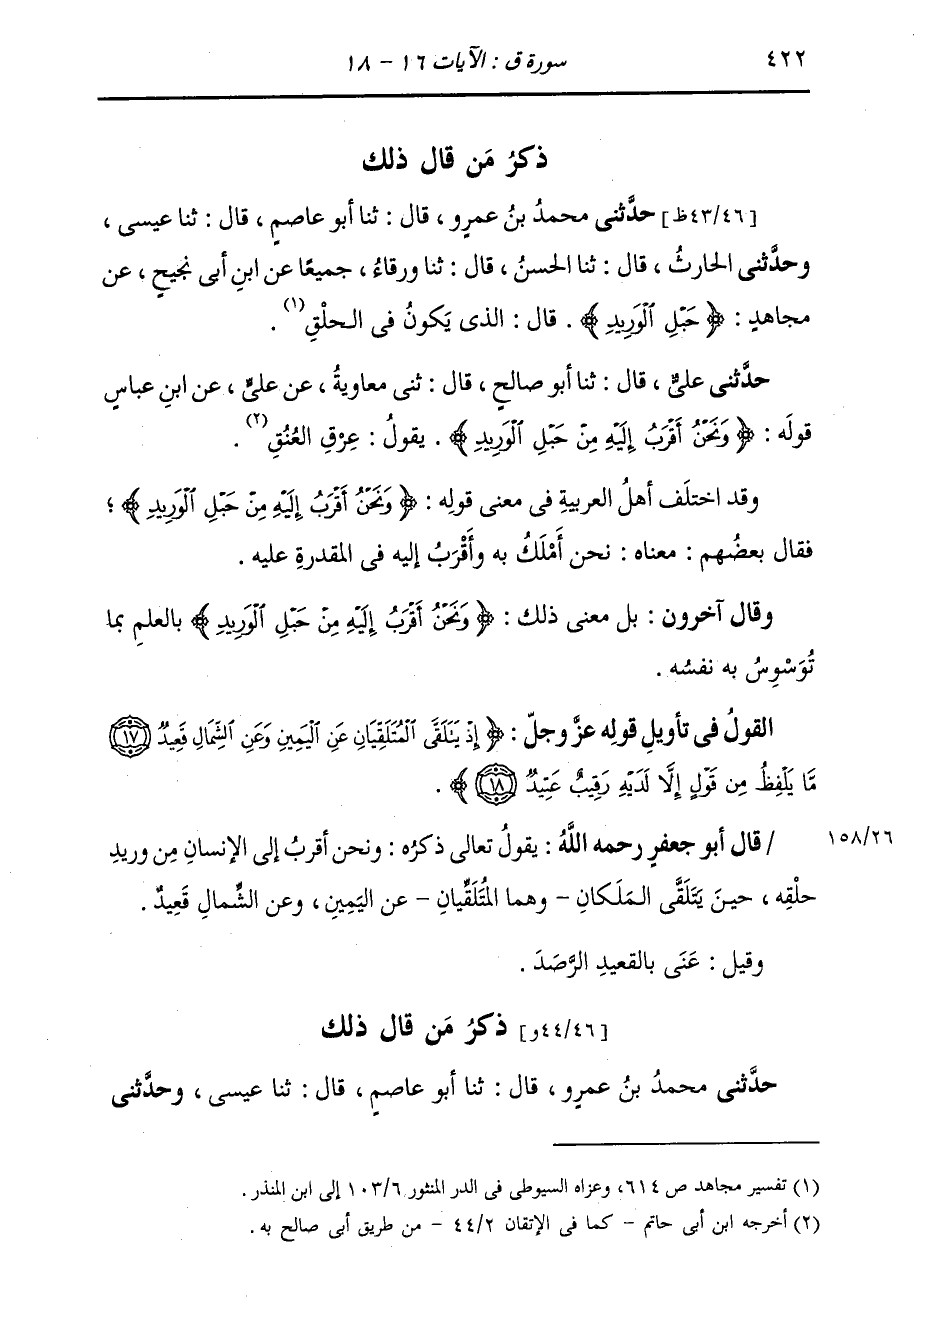 ٤٢٢
سورة ق : الآيات ١٦ - ١٨
ذكرُ مَن قال ذلك
[٤٣/٤٦ظ] حدَّثنى محمدُ بنُ عمرٍو ، قال : ثنا أبو عاصمٍ ، قال : ثنا عيسى ،
وحدَّثنى الحارثُ ، قال : ثنا الحسنُ ، قال : ثنا ورقاءُ ، جميعًا عن ابنِ أبى نجيحٍ ، عن
مجاهدٍ : ﴿ حَبْلِ الْوَرِيدِ ﴾ . قال : الذى يَكونُ فى الحلْقِ(١) .
حدَّثنى علىٌّ ، قال : ثنا أبو صالحٍ ، قال : ثنى معاويةُ ، عن علىٍّ ، عن ابنِ عباسٍ
قولَه : ﴿ وَنَحْنُ أَقْرَبُ إِلَيْهِ مِنْ حَبْلِ الْوَرِيدِ ﴾ . يقولُ : عِرْقِ العُنُقِ(٢) .
وقد اختلَف أهلُ العربيةِ فى معنى قولِه : ﴿ وَنَحْنُ أَقْرَبُ إِلَيْهِ مِنْ حَبْلِ الْوَرِيدِ ﴾ ؛
فقال بعضُهم : معناه : نحن أَمْلَكُ به وأَقْرَبُ إليه فى المقدرةِ عليه .
وقال آخرون : بل معنى ذلك : ﴿ وَنَحْنُ أَقْرَبُ إِلَيْهِ مِنْ حَبْلِ الْوَرِيدِ ﴾ بالعلمِ بما
تُوَسْوِسُ به نفسُه .
القولُ فى تأويلِ قولِه عزَّ وجلّ : ﴿ إِذْ يَتَلَقَّى الْمُتَلَقِّيَانِ عَنِ الْيَمِينِ وَعَنِ الشِّمَالِ قَعِيدٌ ١٧
مَّا يَلْفِظُ مِن قَوْلٍ إِلَّا لَدَيْهِ رَقِيبٌ عَتِيدٌ ١٨ ﴾ .
١٥٨/٢٦
/ قال أبو جعفرٍ رحمه اللَّهُ : يقولُ تعالى ذكرُه : ونحن أقربُ إلى الإنسانِ مِن وريدِ
حلْقِه ، حينَ يَتَلَقَّى المَلَكانِ - وهما المُتَلَقِّيانِ - عن اليَمِينِ ، وعن الشِّمالِ قَعِيدٌ .
وقيل : عَنَى بالقعيدِ الرَّصَدَ .
[٤٤/٤٦و] ذكرُ مَن قال ذلك
حدَّثنى محمدُ بنُ عمرٍو ، قال : ثنا أبو عاصمٍ ، قال : ثنا عيسى ، وحدَّثنى
(١) تفسير مجاهد ص ٦١٤، وعزاه السيوطى فى الدر المنثور ١٠٣/٦ إلى ابن المنذر .
(٢) أخرجه ابن أبى حاتم - كما فى الإتقان ٤٤/٢ - من طريق أبى صالح به .